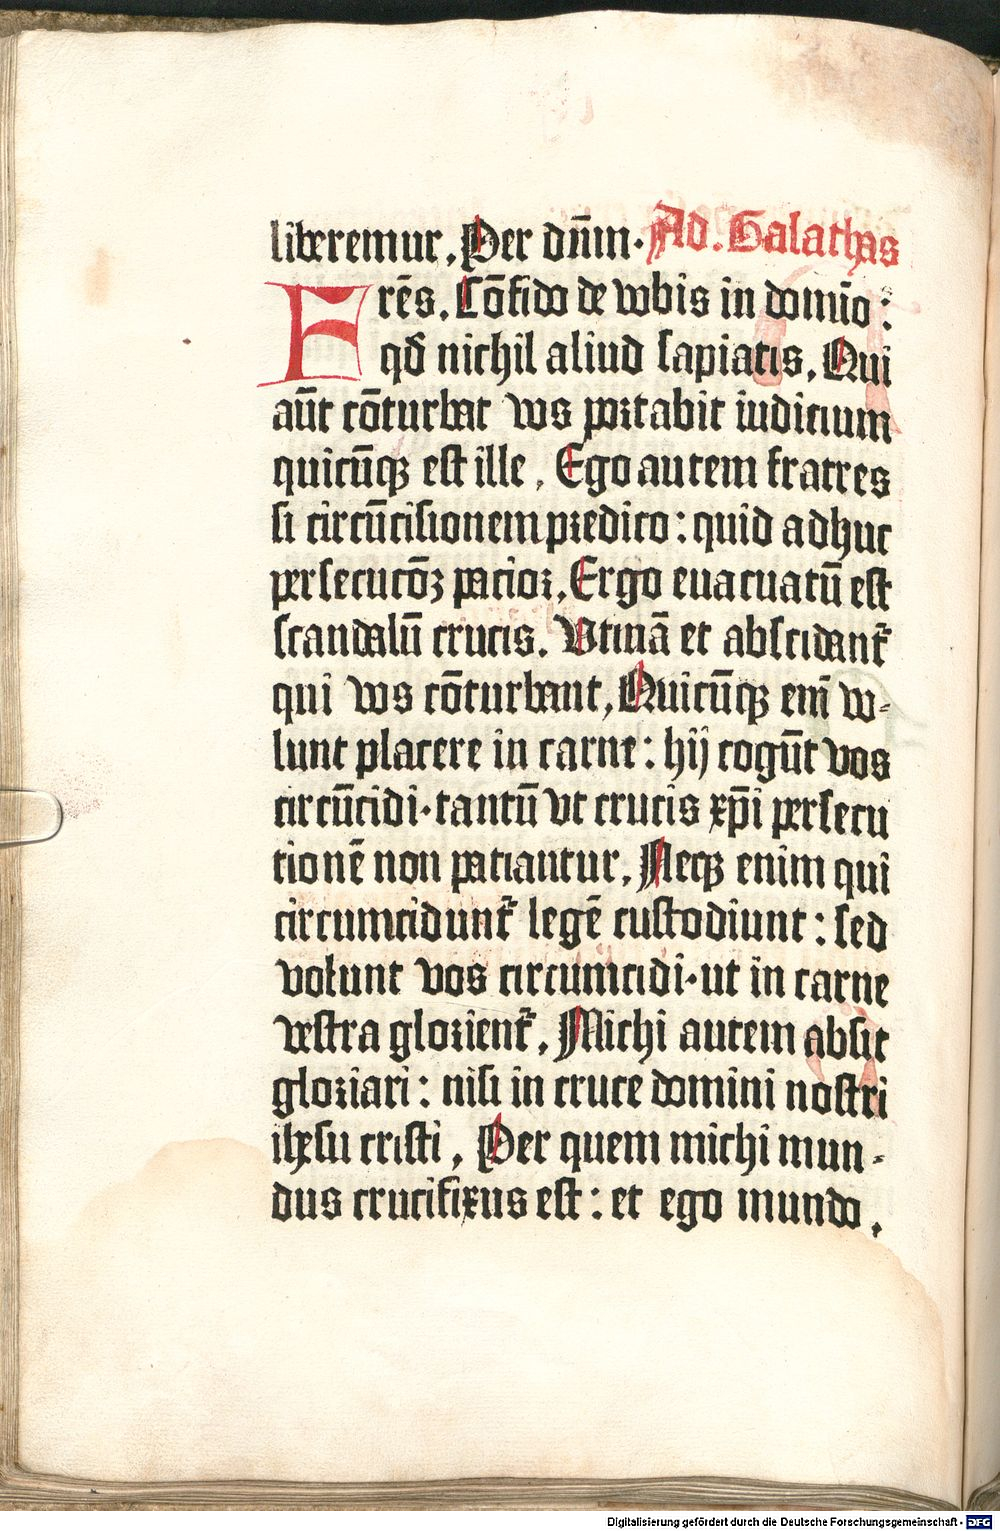 liberemur. Per dn̄m. Ad. Galathas
Frēs. Cōfido de vobis in domīo:
qd̄ nichil aliud sapiatis. Qui
aūt cōturbat vos portabit iudicium
quicūqꝫ est ille. Ego autem fratres
si circūcisionem predico: quid adhuc
persecucōꝫ pacior. Ergo euacuatū est
scandalū crucis. Vtinā et abscidant᷑
qui vos cōturbant, Quicūqꝫ em̄ vo-
lunt placere in carne: hij cogūt vos
circūcidi. tantū vt crucis xp̄i persecu
tionē non patiantur. Neqꝫ enim qui
circumcidunt᷑ legē custodiunt: sed
volunt vos circumcidi. ut in carne
vestra glorient᷑. Michi autem absit
gloriari: nisi in cruce domini nostri
ihesu cristi. Per quem michi mun-
dus crucifixus est: et ego mundo.
Digitalisierung gefördert durch die Deutsche Forschungsgemeinschaft - DFG